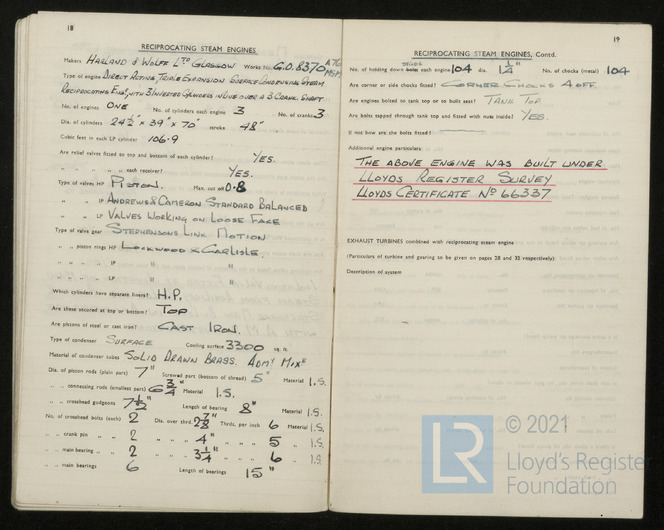 18
RECIPROCATING STEAM ENGINES
Makers HARLAND & WOLFF LTD GLASGOW Works No. G.O. 8370
Type of engine DIRECT ACTING, TRIPLE EXPANSION SURFACE CONDENSING STEAM
RECIPROCATING ENGE, WITH 3 INVERTED CYLINDERS IN LINE OVER A 3 CRANK SHAFT
No. of engines ONE No. of cylinders each engine 3 No. of cranks 3
Dia. of cylinders 24½" x 39" x 70" stroke 48"
Cubic feet in each LP cylinder 106.9
Are relief valves fitted to top and bottom of each cylinder? YES.
" " " " each receiver? YES.
Type of valves HP PISTON. Max. cut off 0.8
" " IP ANDREWS & CAMERON STANDARD BALANCED
" " LP VALVES WORKING ON LOOSE FACE
Type of valve gear STEPHENSONS LINK MOTION
" " piston rings HP LOCKWOOD & CARLISLE
" " " IP " "
" " " LP " "
Which cylinders have separate liners? H.P.
Are these secured at top or bottom? TOP
Are pistons of steel or cast iron? CAST IRON.
Type of condenser SURFACE Cooling surface 3300 sq. ft.
Material of condenser tubes SOLID DRAWN BRASS. ADMY MIXE
Dia. of piston rods (plain part) 7" Screwed part (bottom of thread) 5" Material I.S.
" " connecting rods (smallest part) 6¾" Material I.S.
" " crosshead gudgeons 7½" Length of bearing 8" Material I.S.
No. of crosshead bolts (each) 2 Dia. over thrd. 2⅞" Thrds. per inch 6 Material I.S.
" " crank pin " " 2 " " " 4" " " " 5 " I.S.
" " main bearing " " 2 " " " 3¼" " " " 6 " I.S.
" " main bearings 6 Length of bearings 15"
19
RECIPROCATING STEAM ENGINES, Contd.
No. of holding down bolts STUDS each engine 104 dia. 1¼" No. of chocks (metal) 104
Are corner or side chocks fitted? CORNER CHOCKS 4 OFF.
Are engines bolted to tank top or to built seat? TANK TOP
Are bolts tapped through tank top and fitted with nuts inside? YES.
If not how are the bolts fitted?
Additional engine particulars:
THE ABOVE ENGINE WAS BUILT UNDER
LLOYDS REGISTER SURVEY
LLOYDS CERTIFICATE No 66337
EXHAUST TURBINES combined with reciprocating steam engine
(Particulars of turbine and gearing to be given on pages 28 and 32 respectively)
Description of system
© 2021
LR
Lloyd's Register
Foundation